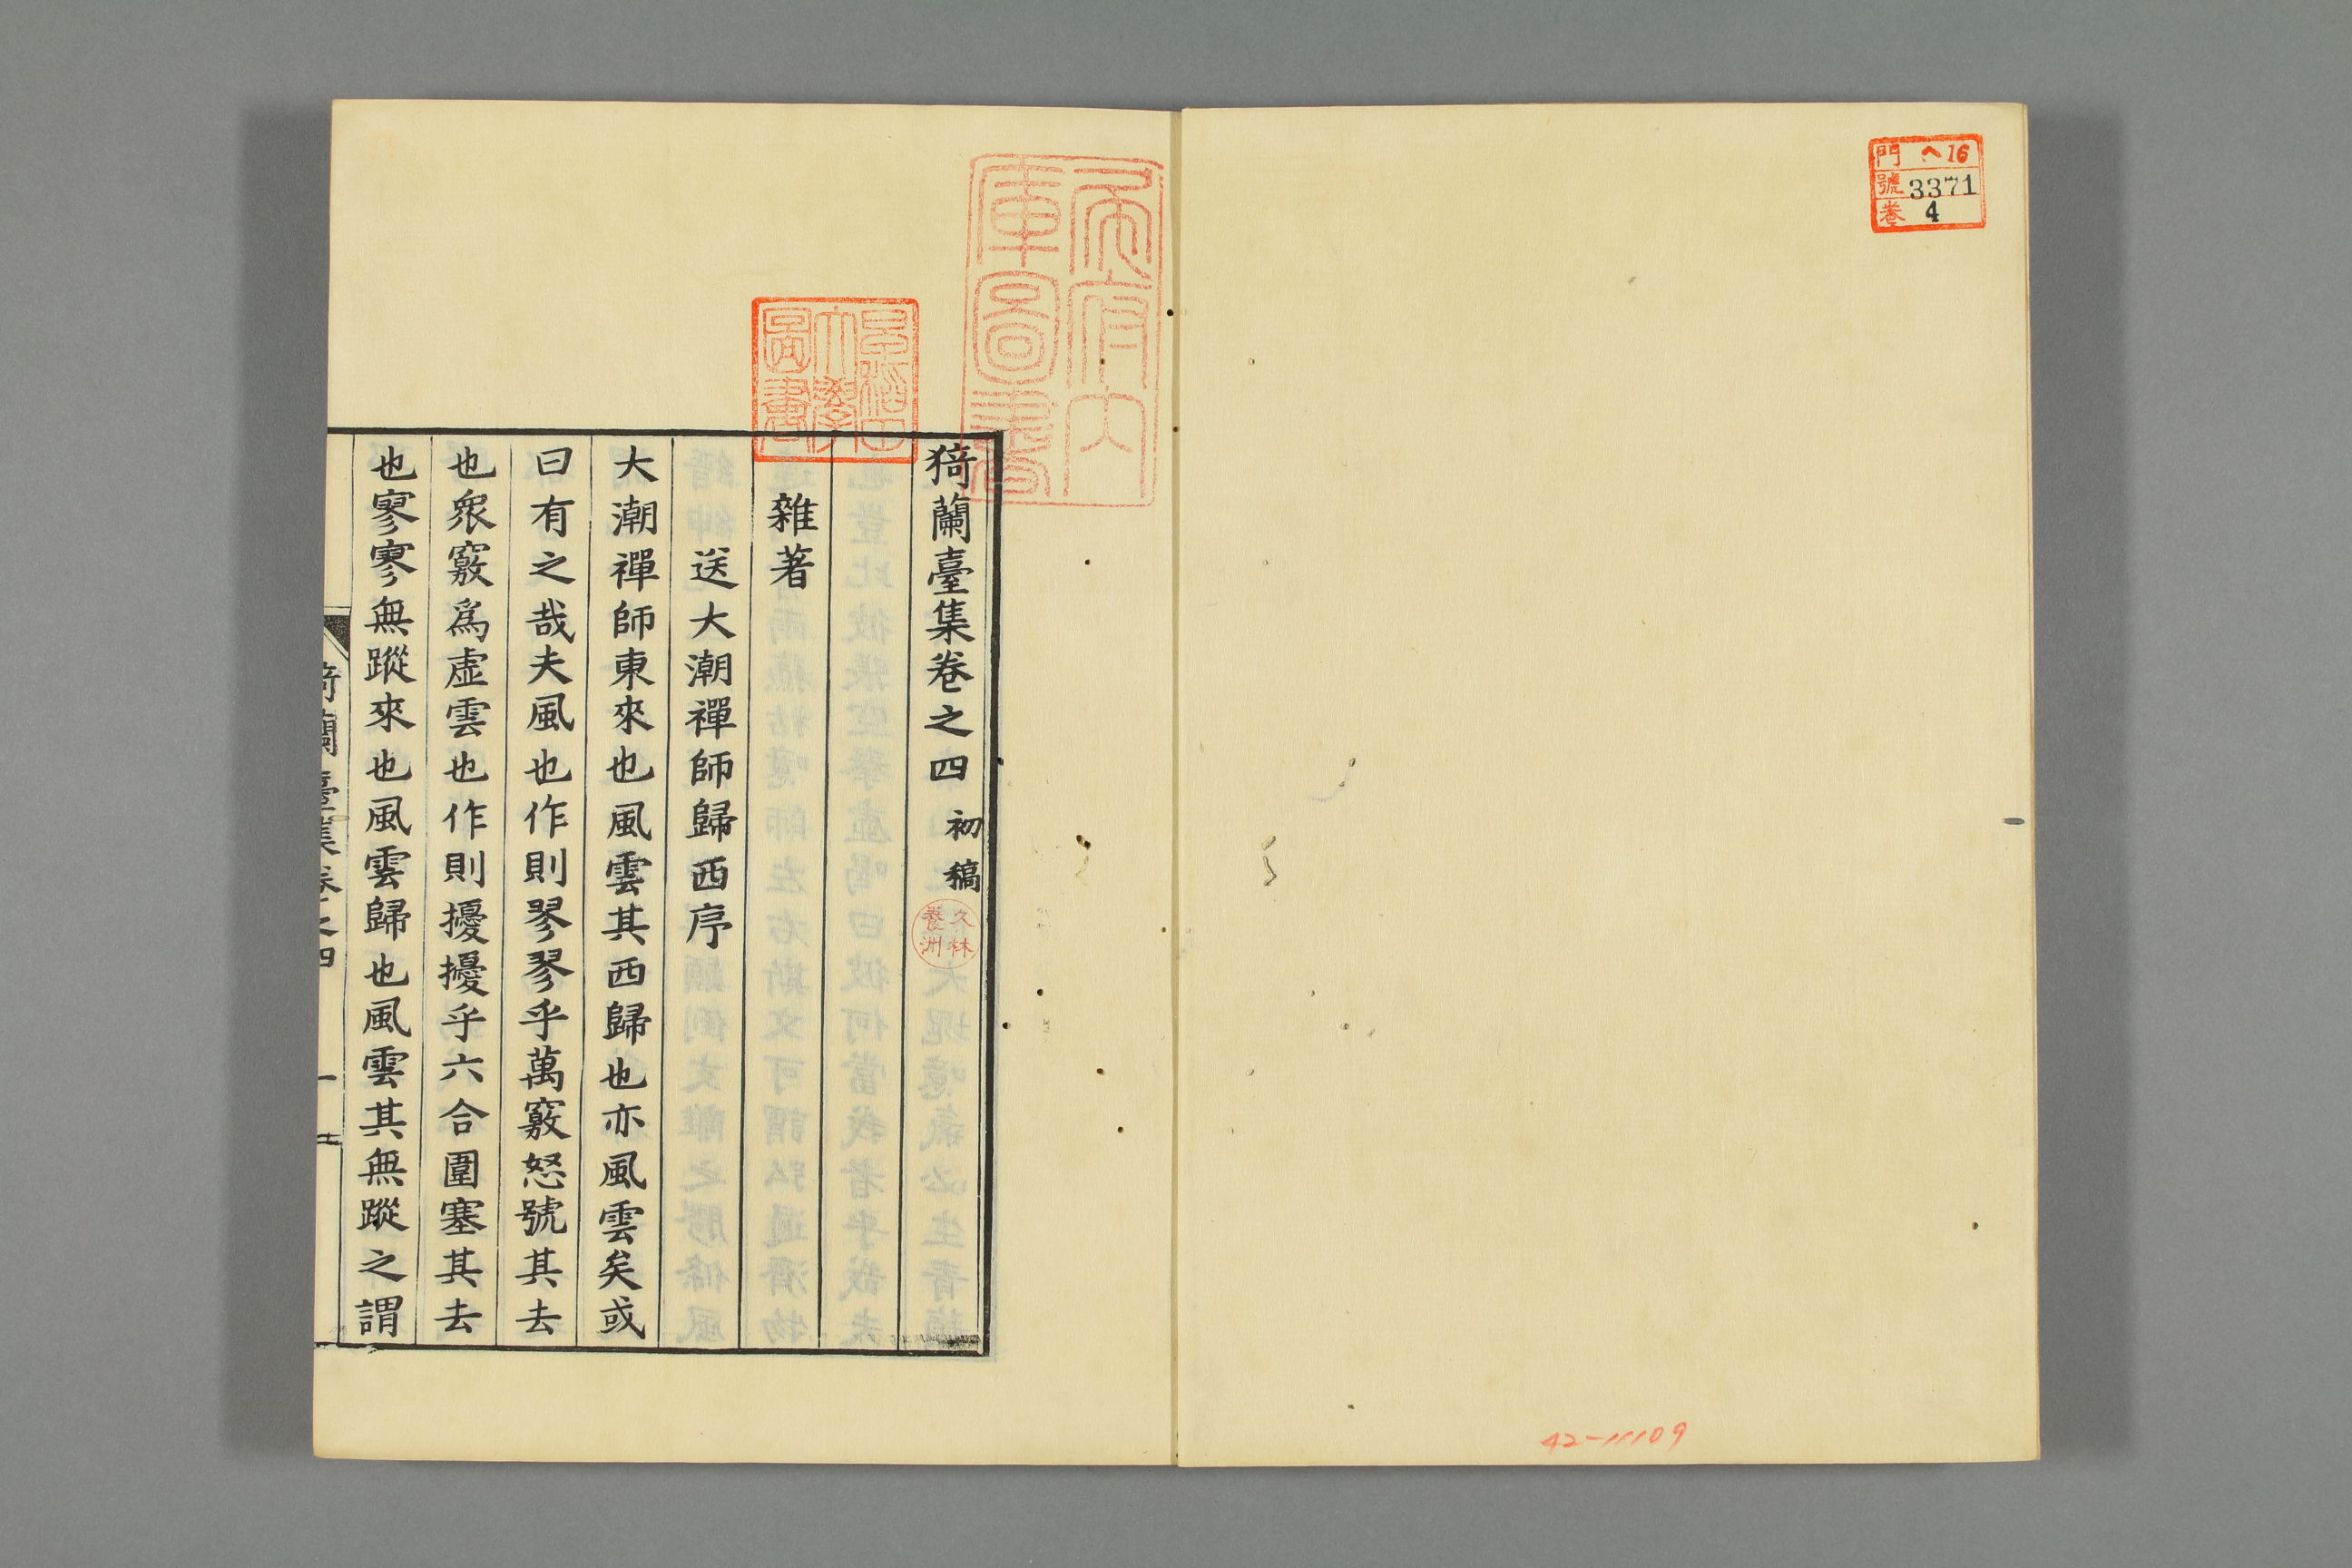 門 ヘ16
號 3371
卷 4
42-11109
猗蘭臺集卷之四 初稿
久林
養洲
雜著
送大潮禪師歸西序
大潮禪師東來也風雲其西歸也亦風雲矣或
曰有之哉夫風也作則翏翏乎萬竅怒號其去
也衆竅爲虛雲也作則擾擾乎六合圍塞其去
也寥寥無蹤來也風雲歸也風雲其無蹤之謂
猗蘭臺集卷之四 一